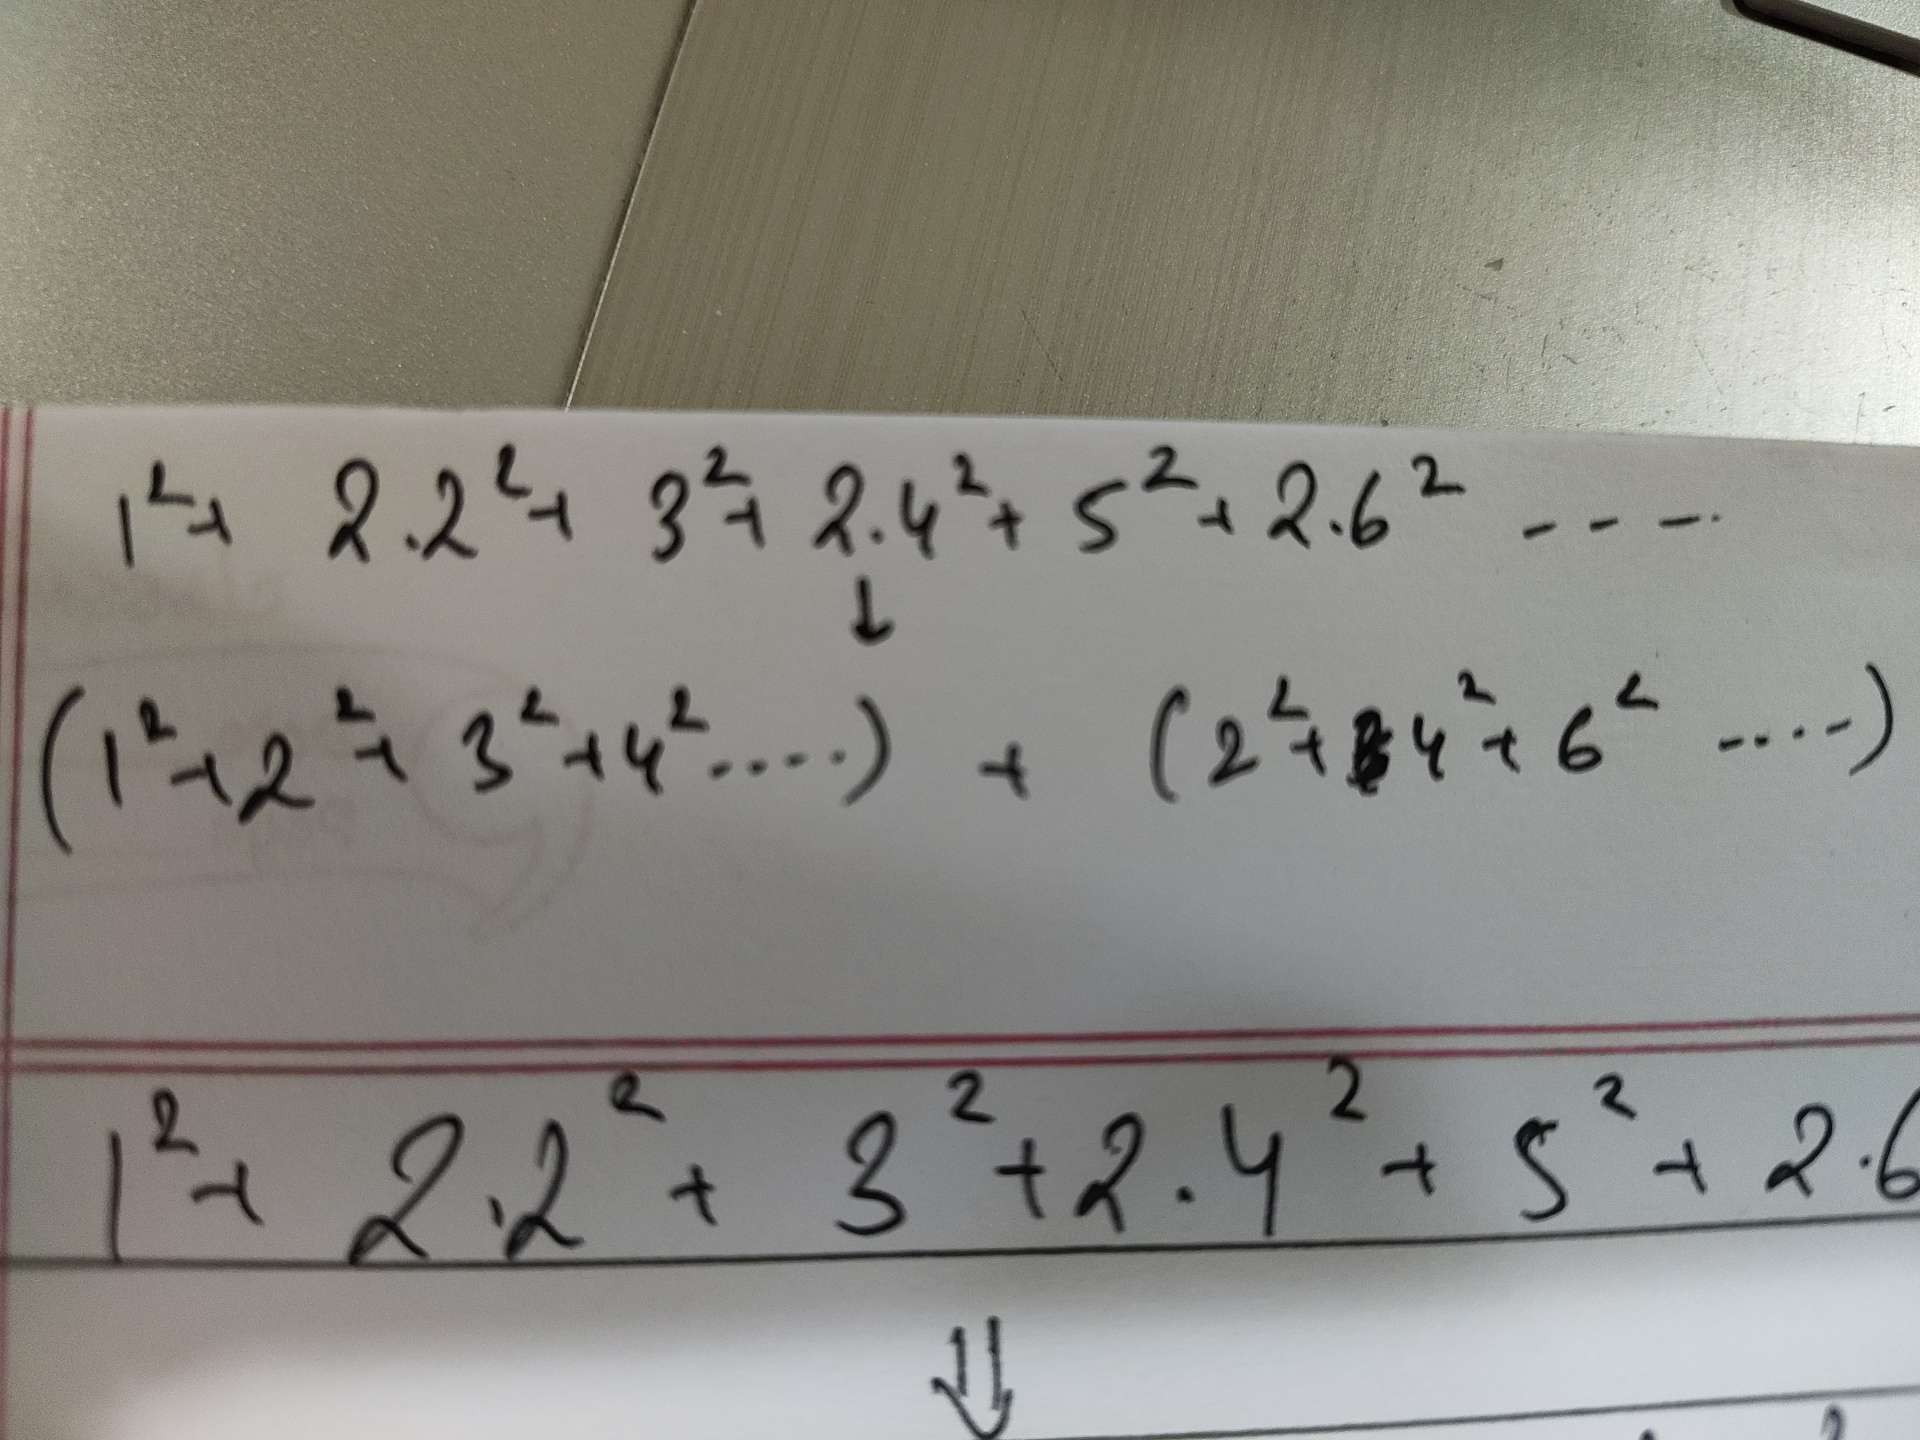 1² + 2.2² + 3² + 2.4² + 5² + 2.6² ----
↓
(1² + 2² + 3² + 4² .....) + (2² + 4² + 6² .....)
1² + 2.2² + 3² + 2.4² + 5² + 2.6
⇓